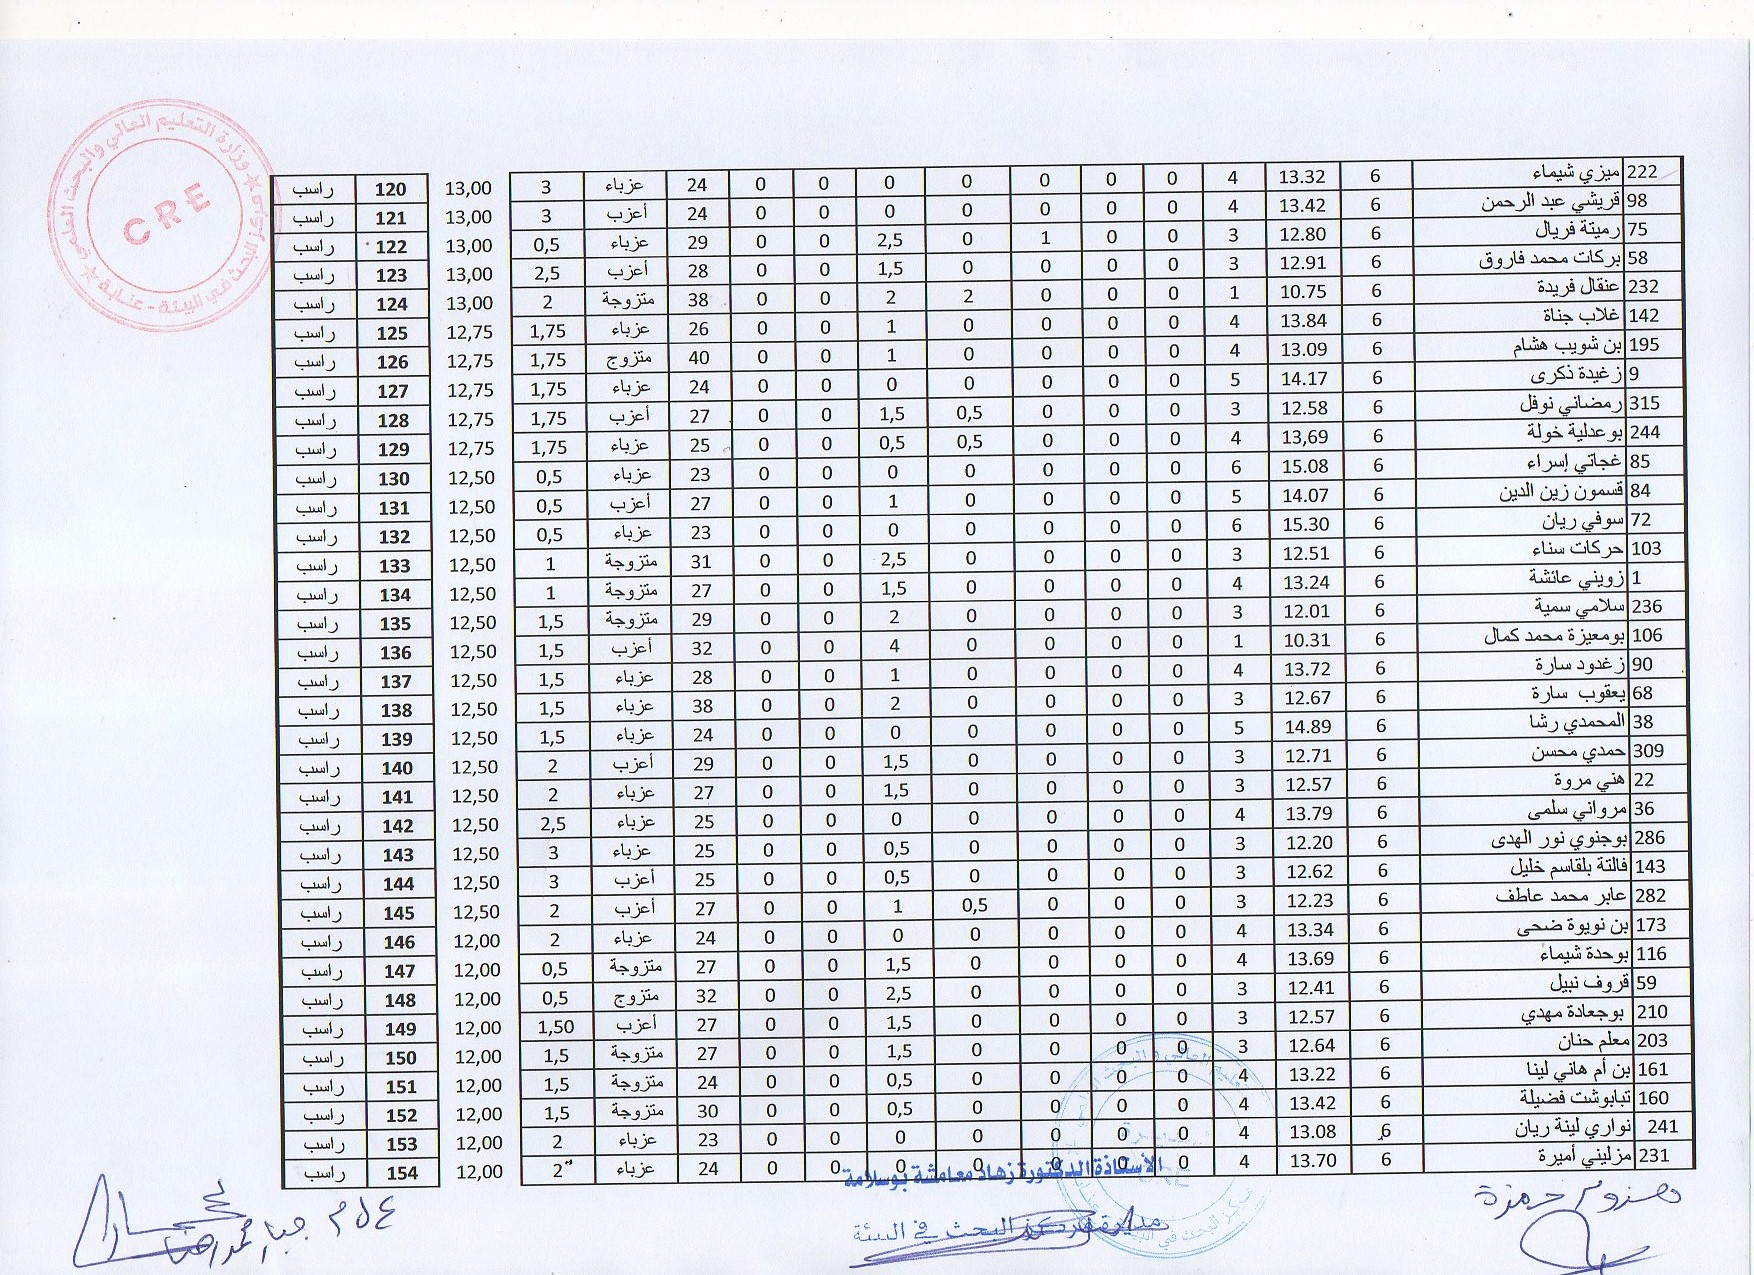 وزارة التعليم العالي والبحث العلمي
مركز البحث في البيئة - عنابة
CRE
222 ميزي شيماء 6 13.32 4 0 0 0 0 0 0 0 24 عزباء 3 13,00 120 راسب
98 قريشي عبد الرحمن 6 13.42 4 0 0 0 0 0 0 0 24 أعزب 3 13,00 121 راسب
75 رميتة فريال 6 12.80 3 0 0 1 0 2,5 0 0 29 عزباء 0,5 13,00 122 راسب
58 بركات محمد فاروق 6 12.91 3 0 0 0 0 1,5 0 0 28 أعزب 2,5 13,00 123 راسب
232 عنقال فريدة 6 10.75 1 0 0 0 2 2 0 0 38 متزوجة 2 13,00 124 راسب
142 غلاب جناة 6 13.84 4 0 0 0 0 1 0 0 26 عزباء 1,75 12,75 125 راسب
195 بن شويب هشام 6 13.09 4 0 0 0 0 1 0 0 40 متزوج 1,75 12,75 126 راسب
9 زغيدة ذكرى 6 14.17 5 0 0 0 0 0 0 0 24 عزباء 1,75 12,75 127 راسب
315 رمضاني نوفل 6 12.58 3 0 0 0 0,5 1,5 0 0 27 أعزب 1,75 12,75 128 راسب
244 بوعدلية خولة 6 13,69 4 0 0 0 0,5 0,5 0 0 25 عزباء 1,75 12,75 129 راسب
85 غجاتي إسراء 6 15.08 6 0 0 0 0 0 0 0 23 عزباء 0,5 12,50 130 راسب
84 قسمون زين الدين 6 14.07 5 0 0 0 0 1 0 0 27 أعزب 0,5 12,50 131 راسب
72 سوفي ريان 6 15.30 6 0 0 0 0 0 0 0 23 عزباء 0,5 12,50 132 راسب
103 حركات سناء 6 12.51 3 0 0 0 0 2,5 0 0 31 متزوجة 1 12,50 133 راسب
1 زويني عائشة 6 13.24 4 0 0 0 0 1,5 0 0 27 متزوجة 1 12,50 134 راسب
236 سلامي سمية 6 12.01 3 0 0 0 0 2 0 0 29 متزوجة 1,5 12,50 135 راسب
106 بومعيزة محمد كمال 6 10.31 1 0 0 0 0 4 0 0 32 أعزب 1,5 12,50 136 راسب
90 زغدود سارة 6 13.72 4 0 0 0 0 1 0 0 28 عزباء 1,5 12,50 137 راسب
68 يعقوب سارة 6 12.67 3 0 0 0 0 2 0 0 38 عزباء 1,5 12,50 138 راسب
38 المحمدي رشا 6 14.89 5 0 0 0 0 0 0 0 24 عزباء 1,5 12,50 139 راسب
309 حمدي محسن 6 12.71 3 0 0 0 0 1,5 0 0 29 أعزب 2 12,50 140 راسب
22 هني مروة 6 12.57 3 0 0 0 0 1,5 0 0 27 عزباء 2 12,50 141 راسب
36 مرواني سلمى 6 13.79 4 0 0 0 0 0 0 0 25 عزباء 2,5 12,50 142 راسب
286 بوجنوي نور الهدى 6 12.20 3 0 0 0 0 0,5 0 0 25 عزباء 3 12,50 143 راسب
143 فالتة بلقاسم خليل 6 12.62 3 0 0 0 0 0,5 0 0 25 أعزب 3 12,50 144 راسب
282 عابر محمد عاطف 6 12.23 3 0 0 0 0,5 1 0 0 27 أعزب 2 12,50 145 راسب
173 بن نويوة ضحى 6 13.34 4 0 0 0 0 0 0 0 24 عزباء 2 12,00 146 راسب
116 بوحدة شيماء 6 13.69 4 0 0 0 0 1,5 0 0 27 متزوجة 0,5 12,00 147 راسب
59 قروف نبيل 6 12.41 3 0 0 0 0 2,5 0 0 32 متزوج 0,5 12,00 148 راسب
210 بوجعادة مهدي 6 12.57 3 0 0 0 0 1,5 0 0 27 أعزب 1,50 12,00 149 راسب
203 معلم حنان 6 12.64 3 0 0 0 0 1,5 0 0 27 متزوجة 1,5 12,00 150 راسب
161 بن أم هاني لينا 6 13.22 4 0 0 0 0 0,5 0 0 24 متزوجة 1,5 12,00 151 راسب
160 تبابوشت فضيلة 6 13.42 4 0 0 0 0 0,5 0 0 30 متزوجة 1,5 12,00 152 راسب
241 نواري لينة ريان 6 13.08 4 0 0 0 0 0 0 0 23 عزباء 2 12,00 153 راسب
231 مزليني أميرة 6 13.70 4 0 0 0 0 0 0 0 24 عزباء 2 12,00 154 راسب
الأستاذة الدكتورة زهاد معامشة بوسلامة
مديرة مركز البحث في البيئة
حمزة